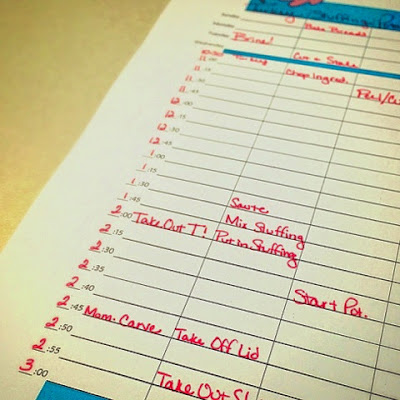 Stuffing
Sunday
Monday Bake Breads
Tuesday Brine!
Wednesday
11:00 Chop Ingred.
11:15 Peel/Cu
11:30
11:45
12:00
12:15
12:30
12:45
1:00
1:15
1:30
1:45 Saute
2:00 Take Out T! Mix Stuffing
2:15 Put in Stuffing
2:30
2:35
2:40 Start Pot.
2:45 Mom-Carve
2:50 Take Off Lid
2:55
3:00 Take Out S!